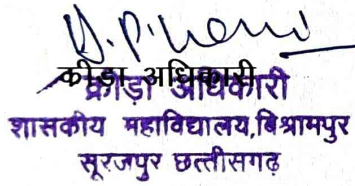 क्रीड़ा अधिकारी
क्रीड़ा अधिकारी
शासकीय महाविद्यालय,बिश्रामपुर
सूरजपुर छत्तीसगढ़